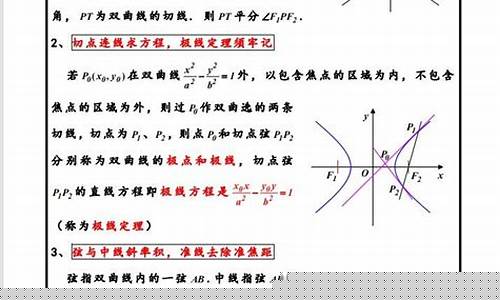 角，PT为双曲线的切线．则PT平分∠F₁PF₂．
2、切点连线求方程，极线定理须牢记
若P₀(x₀,y₀)在双曲线x²/a²-y²/b²=1外，以包含焦点的区域为内，不包含
焦点的区域为外，则过P₀作双曲选的两条
切线，切点为P₁、P₂，则点P₀和切点弦P₁P₂
分别称为双曲线的极点和极线，切点弦
P₁P₂的直线方程即极线方程是x₀x/a²-y₀y/b²=1
（称为极线定理）
3、弦与中线斜率积，准线去除准焦距
弦指双曲线内的一弦AB．中线指弦A
y
P₁
P₀
F₁
O
F₂
x
P₂